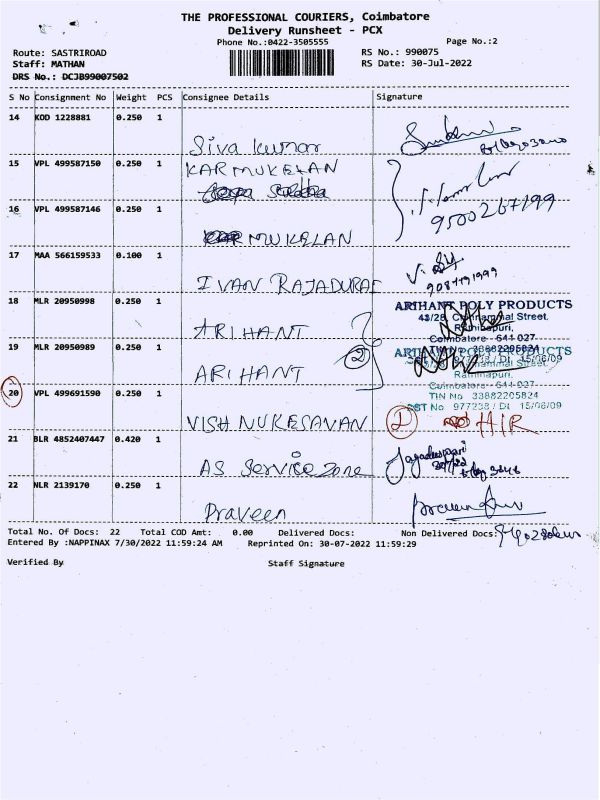 THE PROFESSIONAL COURIERS, Coimbatore
Delivery Runsheet - PCX
Phone No.:0422-3505555
Page No.:2
Route: SASTRIROAD
RS No.: 990075
Staff: MATHAN
RS Date: 30-Jul-2022
DRS No.: DCJB99007502
S No Consignment No Weight PCS Consignee Details Signature
14 KOD 1228881 0.250 1
Siva kumar
15 VPL 499587150 0.250 1 KARMUKELAN
9500267199
16 VPL 499587146 0.250 1
MUKELAN
17 MAA 566159533 0.100 1
IVAN RAJADURAE
18 MLR 20950998 0.250 1
ARIHANT POLY PRODUCTS
43/28, Chinnammal Street,
ARIHANT
Rathinapuri,
Coimbatore - 641 027
19 MLR 20950989 0.250 1
2
ARIHANT POLY PRODUCTS
Chinnammal Street,
ARIHANT
Rathinapuri,
Coimbatore - 641 027
20 VPL 499691590 0.250 1
TIN No 33882205824
CST No 977238 / Dt 15/06/09
VISH NUKESAVAN
1 HIR
21 BLR 4852407447 0.420 1
AS Service Zone
22 NLR 2139170 0.250 1
Praveen
Total No. Of Docs: 22 Total COD Amt: 0.00 Delivered Docs: Non Delivered Docs:
Entered By :NAPPINAX 7/30/2022 11:59:24 AM Reprinted On: 30-07-2022 11:59:29
Verified By Staff Signature